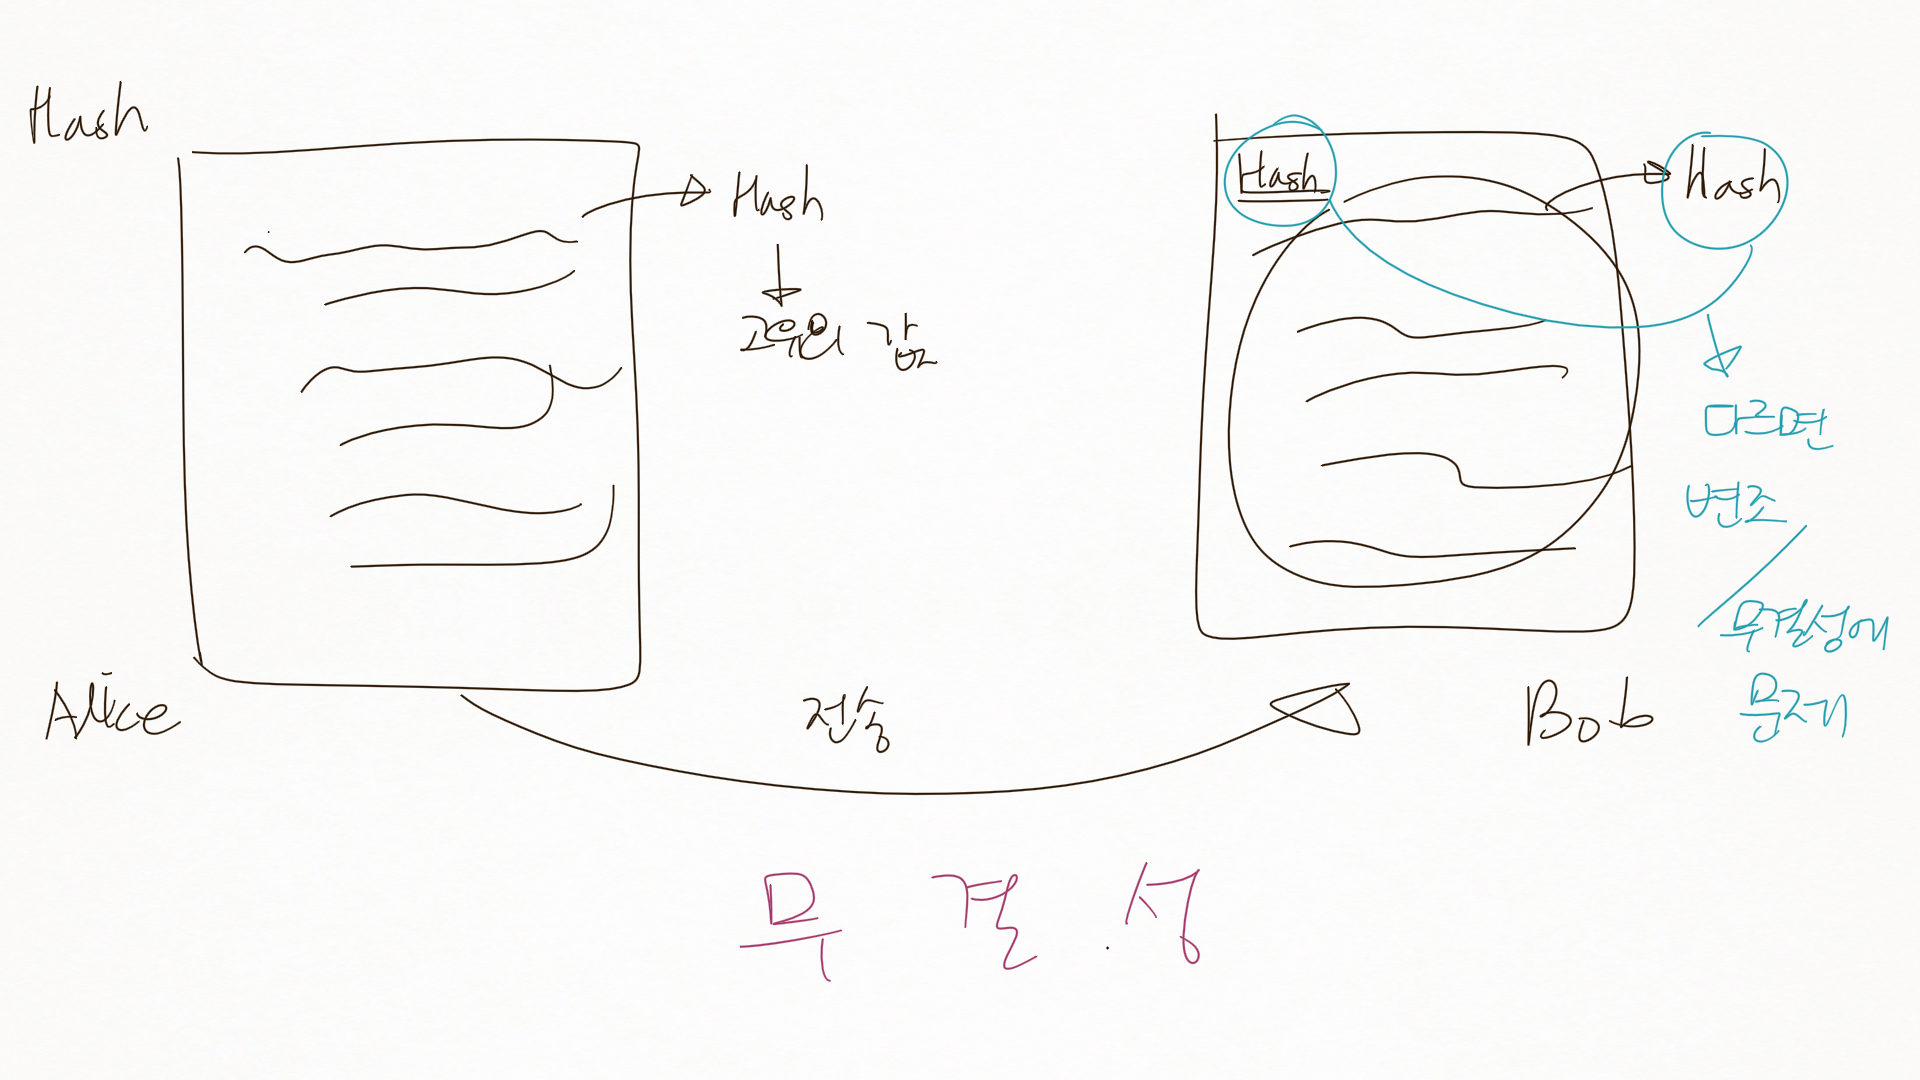 Hash
Hash
고유의 값
Alice
전송
Hash
Hash
다르면
변조
/
무결성에
문제
Bob
무결성